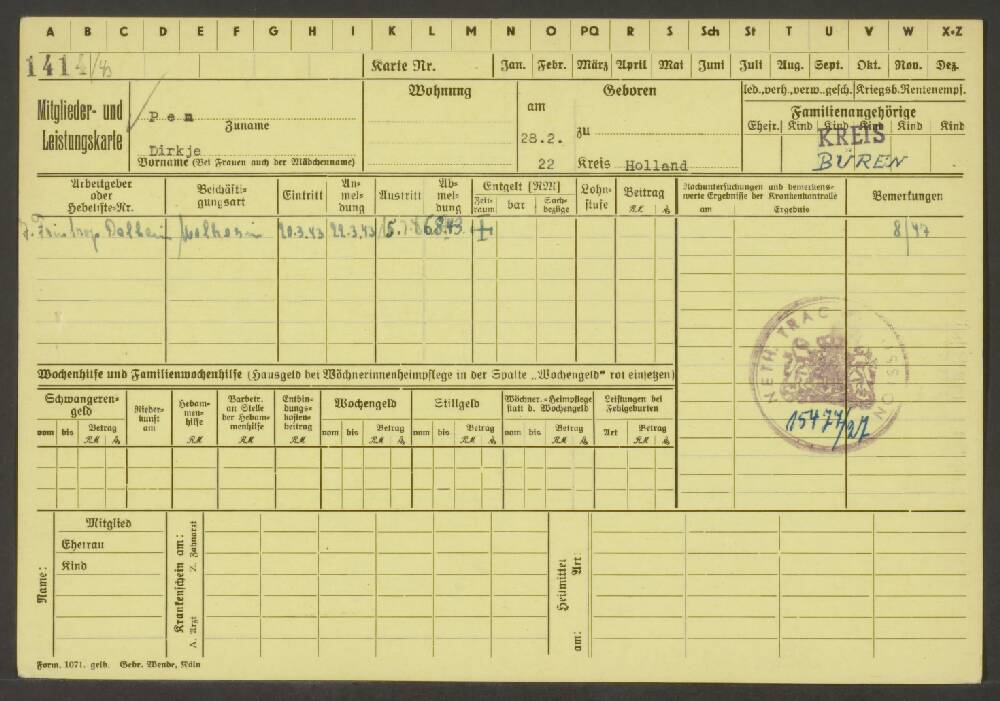 A B C D E F G H I K L M N O PQ R S Sch St T U V W X-Z
141
Karte Nr. Jan. Febr. März April Mai Juni Juli Aug. Sept. Okt. Nov. Dez.
Mitglieder- und Leistungskarte
Pen
Zuname
Dirkje
Vorname (Bei Frauen auch der Mädchenname)
Wohnung
Geboren
am 28.2. 22
zu
Kreis Holland
led., verh., verw., gesch. Kriegsb. Rentenempf.
Familienangehörige
Ehefr. Kind Kind Kind Kind Kind
KREIS
BÜREN
Arbeitgeber oder Hebeliste-Nr. Beschäftigungsart Eintritt Anmeldung Austritt Abmeldung Entgelt (RM) Zeitraum bar Sachbezüge Lohnstufe Beitrag RM Nachuntersuchungen und bemerkenswerte Ergebnisse der Krankenkontrolle am Ergebnis Bemerkungen
20.3.43 22.3.43 8/47
NETH. TRAC ISSION
15477/27
Wochenhilfe und Familienwochenhilfe (Hausgeld bei Wöchnerinnenheimpflege in der Spalte „Wochengeld" rot einsetzen)
Schwangerengeld Niederkunft am Hebammenhilfe Barbetr. an Stelle der Hebammenhilfe Entbindungskostenbeitrag Wochengeld Stillgeld Wöchner.-Heimpflege statt d. Wochengeld Leistungen bei Fehlgeburten
vom bis Betrag RM RM RM RM vom bis Betrag RM vom bis Betrag RM vom bis Betrag RM Art Betrag RM
Name:
Mitglied
Ehefrau
Kind
Krankenschein am:
A. Arzt Z. Zahnarzt
Heilmittel
am: Art:
Form. 1071. gelb. Gebr. Wende, Köln